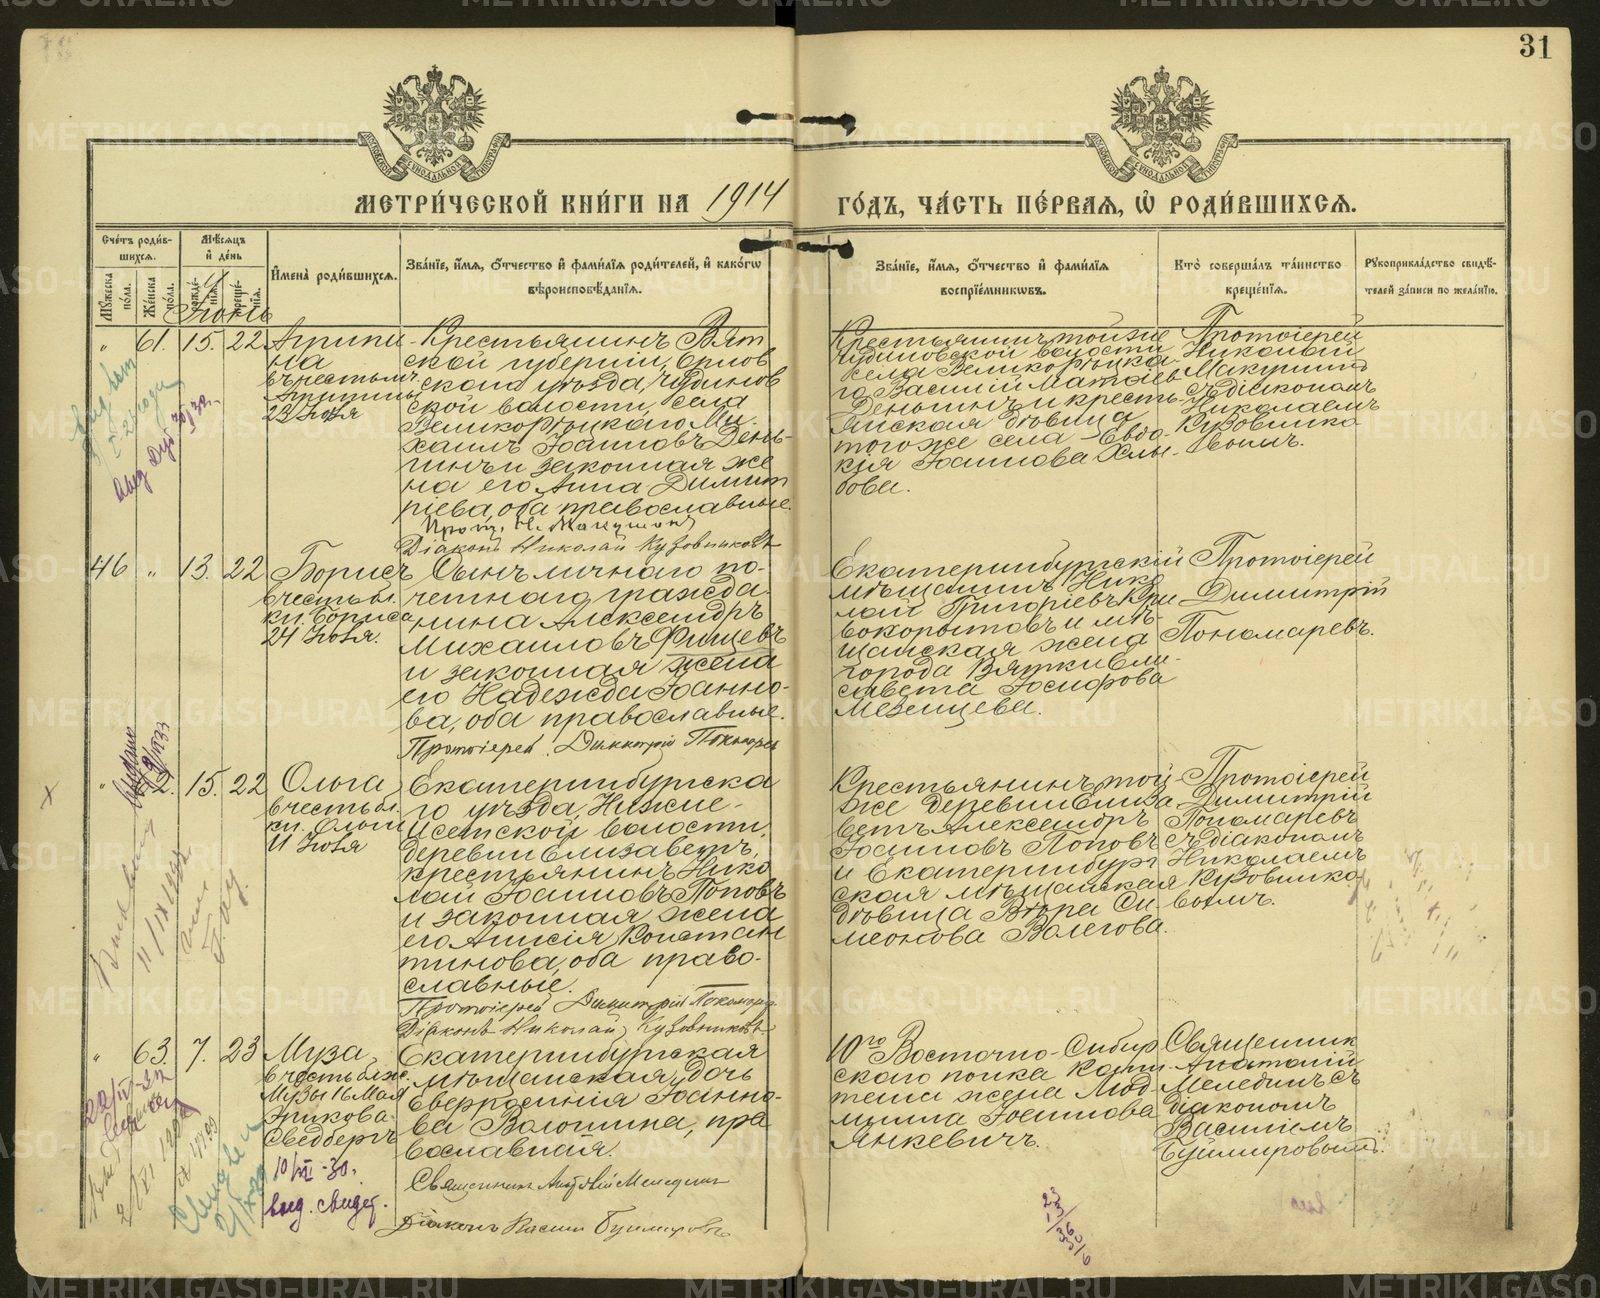 31
МЕТРИ́ЧЕСКОЙ КНИ́ГИ НА 1914
ГО́ДЪ, ЧА́СТЬ ПЕ́РВАЯ, Ѡ҆ РОДИ́ВШИХСЯ.
Сче́тъ роди́в-
шихся.
Мꙋ́жеска по́ла.
Же́нска по́ла.
Мѣ́сяцъ
и҆ де́нь
рожде́нїя.
креще́нїя.
И҆мена̀ роди́вшихся.
Зва́нїе, и҆́мя, ѻ҆́тчество и҆ фами́лїя роди́телей, и҆ како́гѡ
вѣроисповѣ́данїя.
Зва́нїе, и҆́мя, ѻ҆́тчество и҆ фами́лїя
воспрїе́мникѡвъ.
Кто̀ соверша́лъ та́инство
креще́нїя.
Рꙋкоприкла́дство свидѣ́-
телей за́писи по жела́нїю.
Іюнь
" 61. 15. 22
Агрипи-
на
въ честь мч.
Агрипины
23 Іюня
Крестьянинъ Вят
ской губерніи, Орлов
скаго уѣзда, Чудинов
ской волости, села
Великорѣцкаго Ми-
хаилъ Іоанновъ День-
гинъ и законная же
на его Анна Димит
ріева, оба православные.
Прот. Н. Макушинъ
Діаконъ Николай Кузовниковъ
Крестьянинъ той же
Чудиновской волости
села Великорѣцка-
го Василій Матѳіевъ
Деньгинъ и кресть-
янская дѣвица
того же села Евдо-
кія Іоаннова Хлы-
бова.
Протоіерей
Николай
Макушинъ
съ діакономъ
Николаемъ
Кузовнико
вымъ.
46 " 13. 22
Борисъ
въ честь бл.
кн. Бориса
24 Іюля.
Сынъ личнаго по-
четнаго гражда-
нина Александръ
Михаиловъ Фищевъ
и законная жена
его Надежда Іоанно-
ва, оба православные.
Протоіерей Димитрій Пономаревъ
Екатеринбургскій
мѣщанинъ Нико
лай Григоріевъ Кри
вокорытовъ и мѣ-
щанская жена
города Вятки Ели-
савета Іосифова
Мезенцева.
Протоіерей
Димитрій
Пономаревъ.
" 15. 22
Ольга
въ честь бл.
кн. Ольги
11 Іюля
Екатеринбургска
го уѣзда, Нижне-
Исетской волости,
деревни Елизаветъ,
крестьянинъ Нико
лай Іоанновъ Поповъ
и законная жена
его Анисія Констан
тинова, оба право-
славные.
Протоіерей Димитрій Пономаревъ
Діаконъ Николай Кузовниковъ
Крестьянинъ той
же деревни Елиза
ветъ Александръ
Іоанновъ Поповъ
и Екатеринбург
ская мѣщанская
дѣвица Вѣра Си
меонова Волегова.
Протоіерей
Димитрій
Пономаревъ
съ діакономъ
Николаемъ
Кузовнико
вымъ.
" 63. 7. 23
Муза
въ честь блж.
Музы 16 Мая
Эрикова
Сведбергъ
10/VII-30.
выд. свидет.
Екатеринбургская
мѣщанская дочь
Евфросинія Іоанно-
ва Волошина, пра
вославная.
Священникъ Анатолій Меледин
Діаконъ Василій Буймировъ
10го Восточно-Сибир
скаго полка капи-
тана жена Люд-
мила Іосифова
Янкевичъ.
Священник
Анатолій
Мелединъ съ
діакономъ
Василіемъ
Буймировымъ.